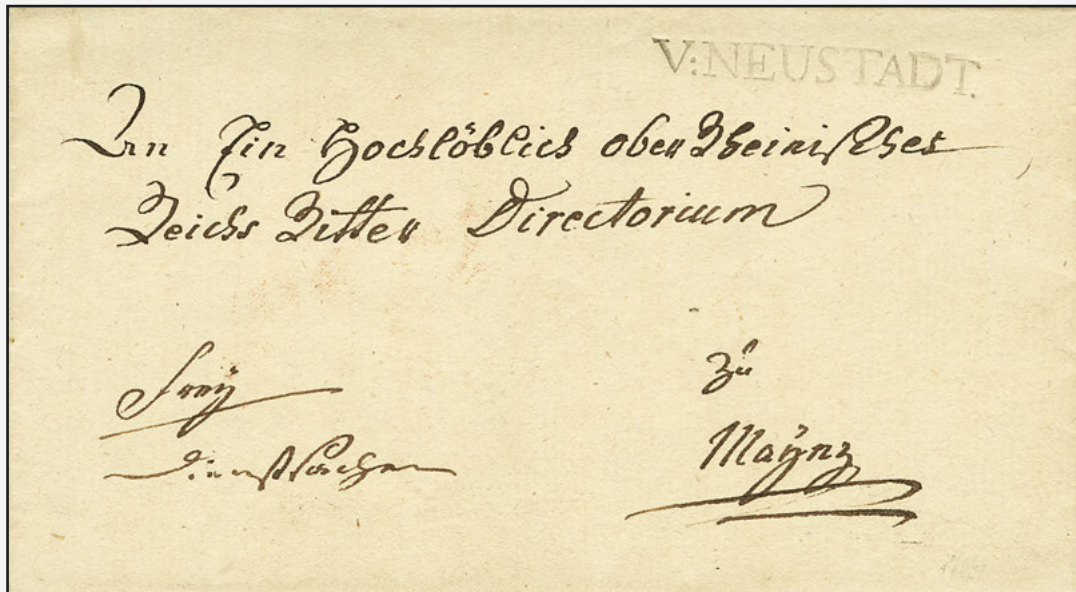 V:NEUSTADT.
An Ein Hochlöblich ober Rheinisches
Reichs Ritter Directorium
frey
Dienstsachen
zu
Maÿnz